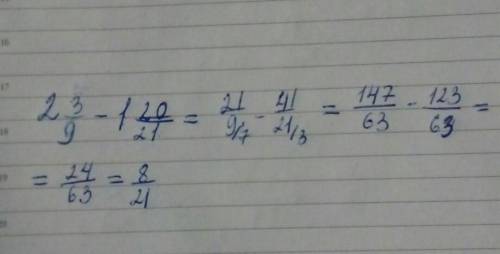 2 3/9 - 1 20/21 = 21/9/7 - 41/21/3 = 147/63 - 123/63 =
= 24/63 = 8/21